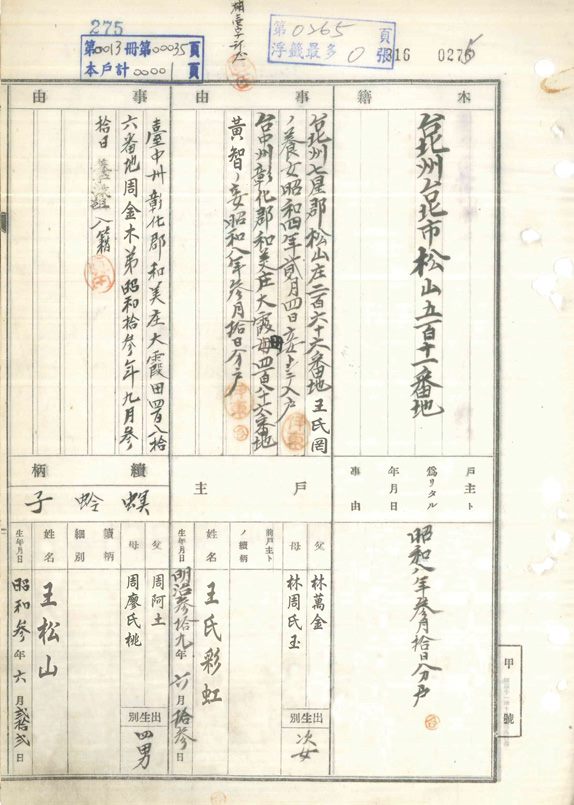 275
第0013冊第00035頁
本戶計00001頁
第0265頁
浮籤最多0張
316 0275
本籍
台北州台北市松山五百十一番地
戶主ト為リタル年月日事由
昭和八年參月拾日分戶
事由
台北州七星郡松山庄二百六十六番地王氏罔
ノ養女昭和四年貳月四日妾トシテ入戶
台中州彰化郡和美庄大霞田四百八十六番地
黃智ノ妾昭和八年參月拾日分戶
戶主
父
林萬金
母
林周氏玉
出生別
次女
前戶主トノ續柄
姓名
王氏彩虹
生年月日
明治參拾九年六月拾參日
事由
臺中州彰化郡和美庄大霞田四百八拾
六番地周金木弟昭和拾參年九月參
拾日養子緣組入籍
續柄
螟蛉子
父
周阿土
母
周廖氏桃
出生別
四男
續柄細別
姓名
王松山
生年月日
昭和參年六月貳拾貳日
甲號